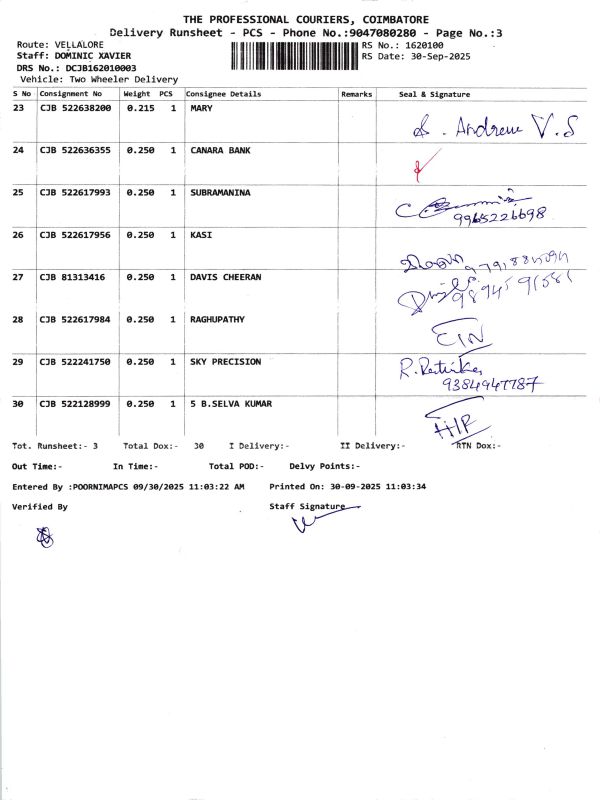 THE PROFESSIONAL COURIERS, COIMBATORE
Delivery Runsheet - PCS - Phone No.:9047080280 - Page No.:3
Route: VELLALORE RS No.: 1620100
Staff: DOMINIC XAVIER RS Date: 30-Sep-2025
DRS No.: DCJB162010003
Vehicle: Two Wheeler Delivery
S No Consignment No Weight PCS Consignee Details Remarks Seal & Signature
23 CJB 522638200 0.215 1 MARY
S. Andrew V.S
24 CJB 522636355 0.250 1 CANARA BANK
25 CJB 522617993 0.250 1 SUBRAMANINA
9965226698
26 CJB 522617956 0.250 1 KASI
27 CJB 81313416 0.250 1 DAVIS CHEERAN
28 CJB 522617984 0.250 1 RAGHUPATHY
29 CJB 522241750 0.250 1 SKY PRECISION
9384947787
30 CJB 522128999 0.250 1 5 B.SELVA KUMAR
Tot. Runsheet:- 3 Total Dox:- 30 I Delivery:- II Delivery:- RTN Dox:-
Out Time:- In Time:- Total POD:- Delvy Points:-
Entered By :POORNIMAPCS 09/30/2025 11:03:22 AM Printed On: 30-09-2025 11:03:34
Verified By Staff Signature